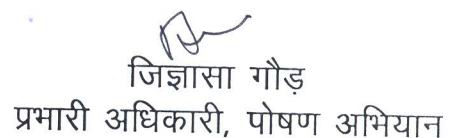 जिज्ञासा गौड़
प्रभारी अधिकारी, पोषण अभियान